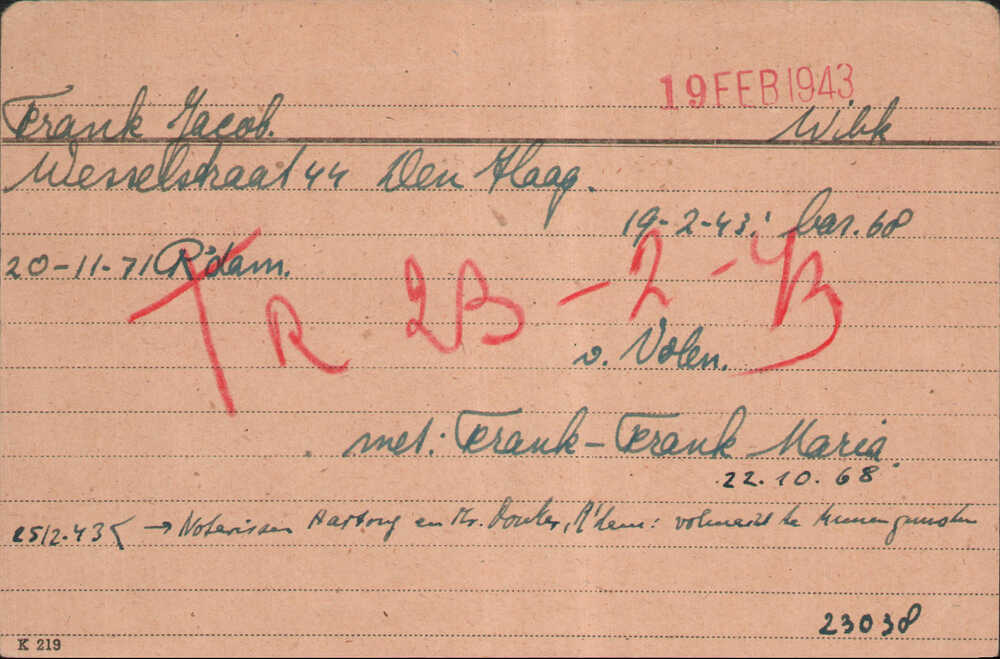 19 FEB 1943
Frank Jacob. Wibk
Wesselstraat 44 Den Haag.
19-2-43: bar. 68
20-11-71 R'dam.
TR 23-2-43
v. Volen.
met: Frank-Frank Maria.
22.10.68
25/2.43 → Notarissen Hartong en Mr. Donker, R'dam: volmacht te hunnen gunsten
23038
K 219